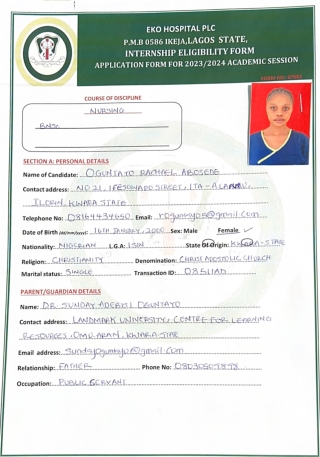 EKO HOSPITAL PLC
P.M.B 0586 IKEJA,LAGOS STATE,
INTERNSHIP ELIGIBILITY FORM
APPLICATION FORM FOR 2023/2024 ACADEMIC SESSION
COURSE OF DISCIPLINE
NURSING
BNSC
SECTION A: PERSONAL DETAILS
Name of Candidate: OGUNTAYO RACHAEL ABOSEDE
Contact address: NO 21, STREET, ITA-A
ILORIN, KWARA STATE
Telephone No: 08164434650 Email:
Date of Birth (dd/mm/yyyy) 16TH JANUARY, 2000 Sex: Male Female ✓
Nationality: NIGERIAN L.G.A: ISIN State Of Origin: KWARA-STATE
Religion: CHRISTIANITY Denomination: CHRIST APOSTOLIC CHURCH
Marital status: SINGLE Transaction ID:
PARENT/GUARDIAN DETAILS
Name: DR. SUNDAY ADEBISI OGUNTAYO
Contact address: LANDMARK UNIVERSITY, CENTRE FOR LEARNING
RESOURCES, OMU-ARAN, KWARA-STATE
Email address:
Relationship: FATHER Phone No:
Occupation: PUBLIC SERVANT